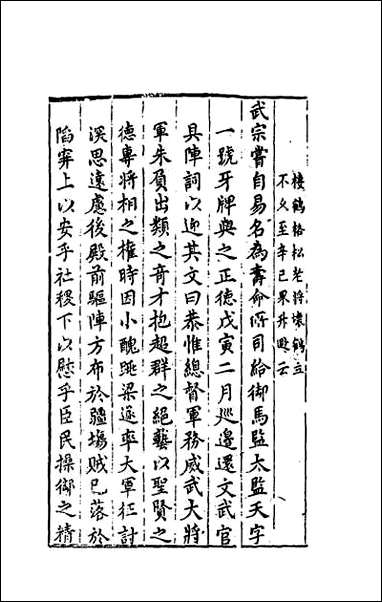 棲鶴格松老將壞鶴立
不久至辛巳果升遐云
武宗嘗自易名為壽命所司給御馬監太監天字
一號牙牌與之正德戊寅二月巡邊還文武官
具陣詞以迎其文曰恭惟總督軍務威武大將
軍朱負出類之竒才抱超群之絕藝以聖賢之
德專將相之權時因小醜跳梁遂率大軍征討
深思遠慮後殿前驅陣方布於疆場賊已落於
陷穽上以安乎社稷下以慰乎臣民操御之精